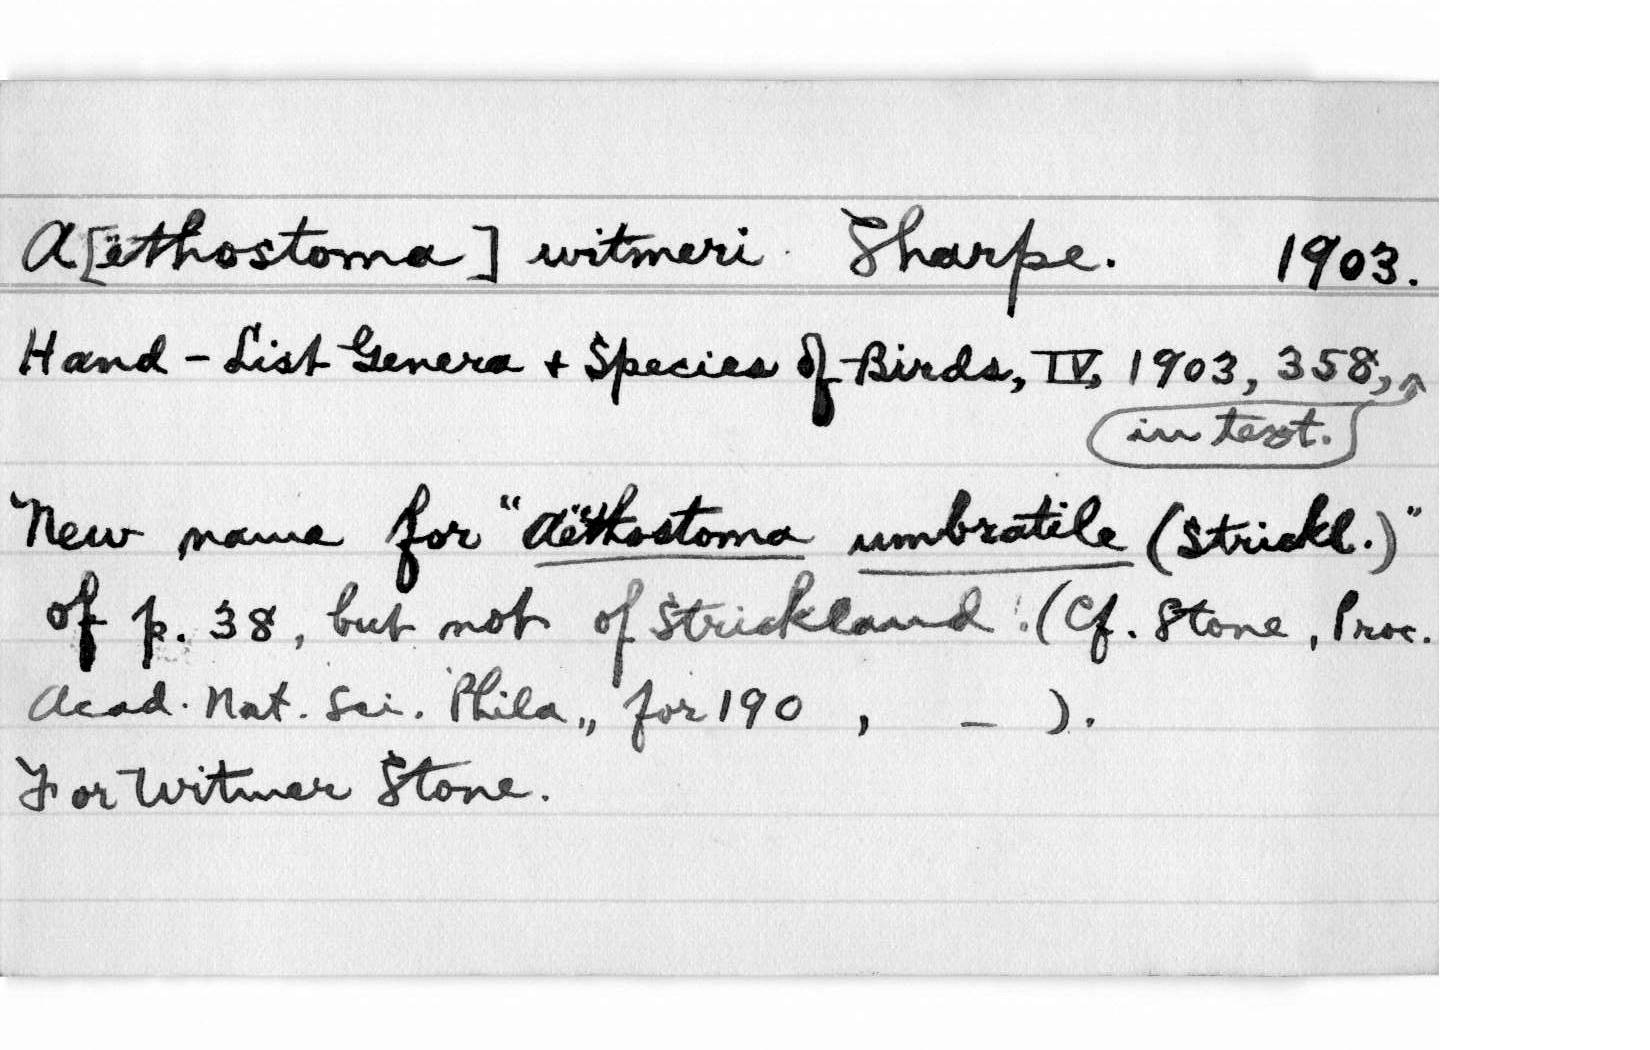 A[ëthostoma] witmeri Sharpe. 1903.
Hand-List Genera + Species of Birds, IV, 1903, 358,
in text.
New name for "Aëthostoma umbratile (Strickl.)"
of p. 38, but not of Strickland. (Cf. Stone, Proc.
Acad. Nat. Sci. Phila., for 190 , – ).
For Witmer Stone.